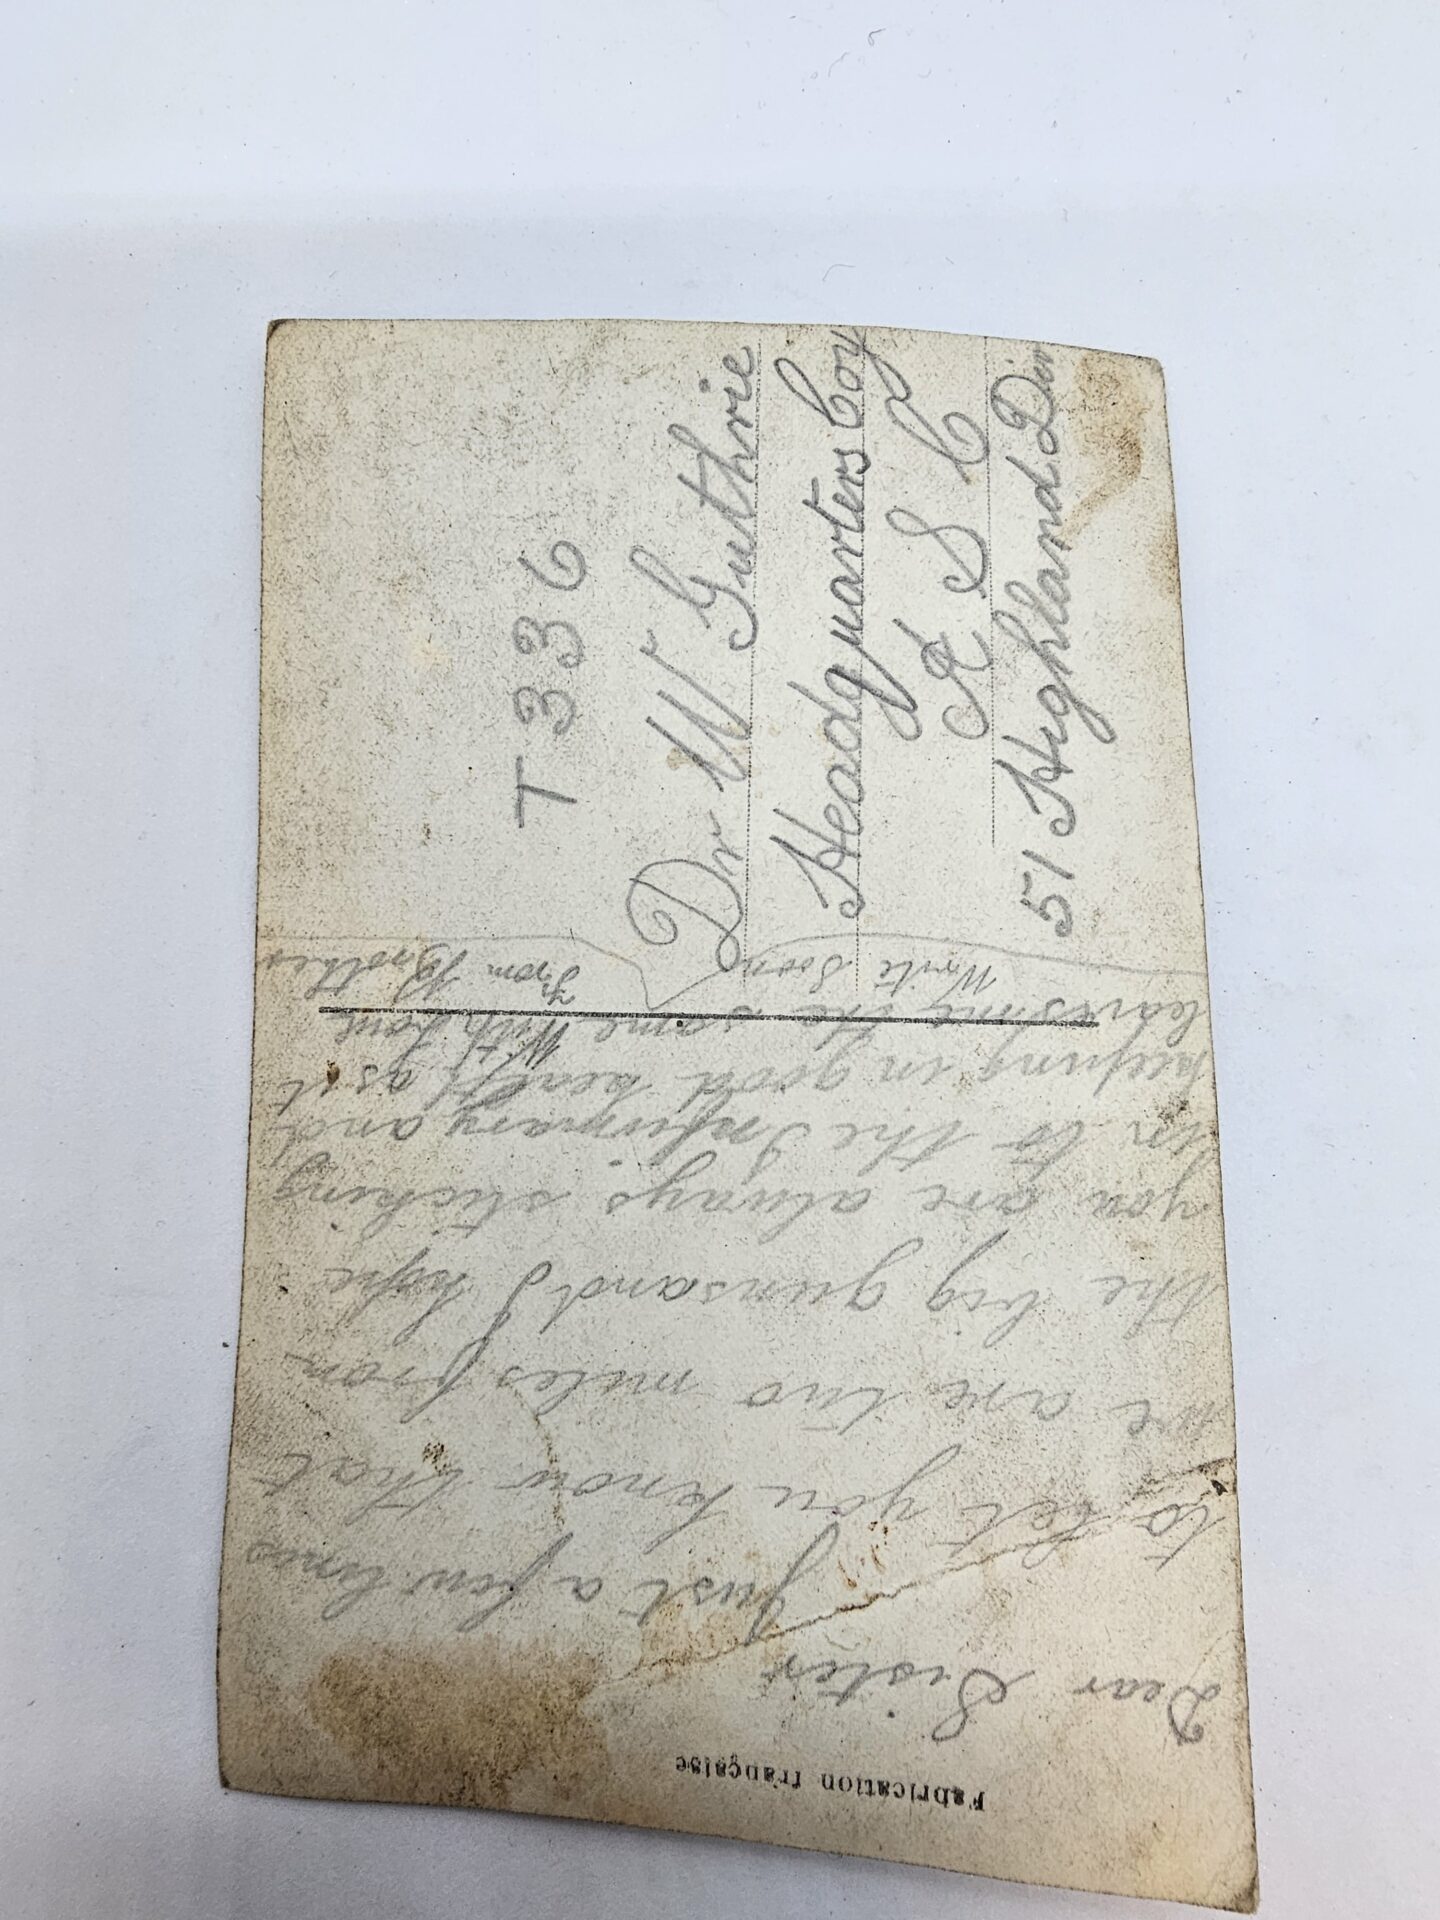 Fabrication française
Dear Sister
Just a few lines
to let you know that
we are two miles from
the big guns and I hope
you are always sticking
in to the Infirmary and
keeping in good health as it
leaves me the same With Love
From Brother
Write Soon
T 336
Dr W Guthrie
Headquarters Coy
A S C
51 Highland Div